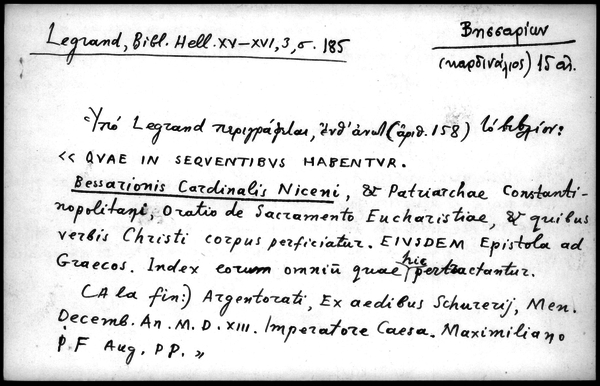 Legrand, Bibl. Hell. XV–XVI, 3, σ. 185
Βησσαρίων
(καρδινάλιος) 15 αἰ.
Ὑπό Legrand περιγράφεται, ἔνθ' ἀνωτ. (ἀριθ. 158) τό βιβλίον:
« QVAE IN SEQVENTIBVS HABENTVR.
Bessarionis Cardinalis Niceni, & Patriarchae Constanti-
nopolitani, Oratio de Sacramento Eucharistiae, & quibus
verbis Christi corpus perficiatur. EIVSDEM Epistola ad
Graecos. Index eorum omniū quae hic pertractantur.
(A la fin:) Argentorati, Ex aedibus Schurerij, Men.
Decemb. An. M. D. XIII. Imperatore Caesa. Maximiliano
P. F Aug. PP. »